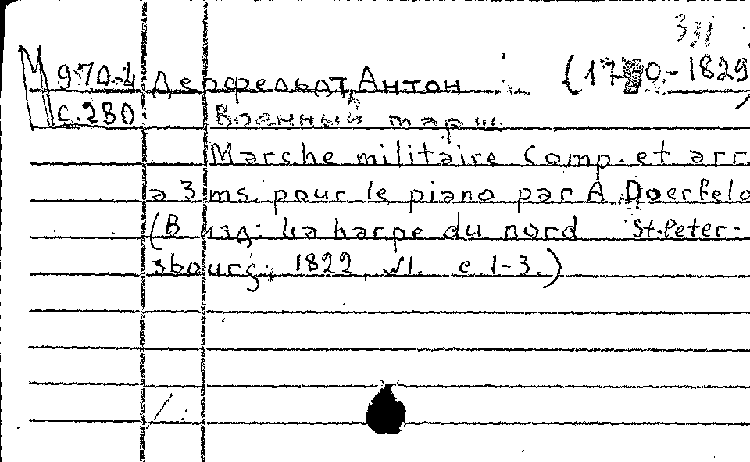 М 970-4 Дерфельдт, Антон (1780-1829)
с. 280 Военный марш
Marche militaire comp. et arr
a 3 ms. pour le piano par A. Doerfeld
(В изд: La harpe du nord St. Peter-
sbourg, 1822, №1. с. 1-3.)